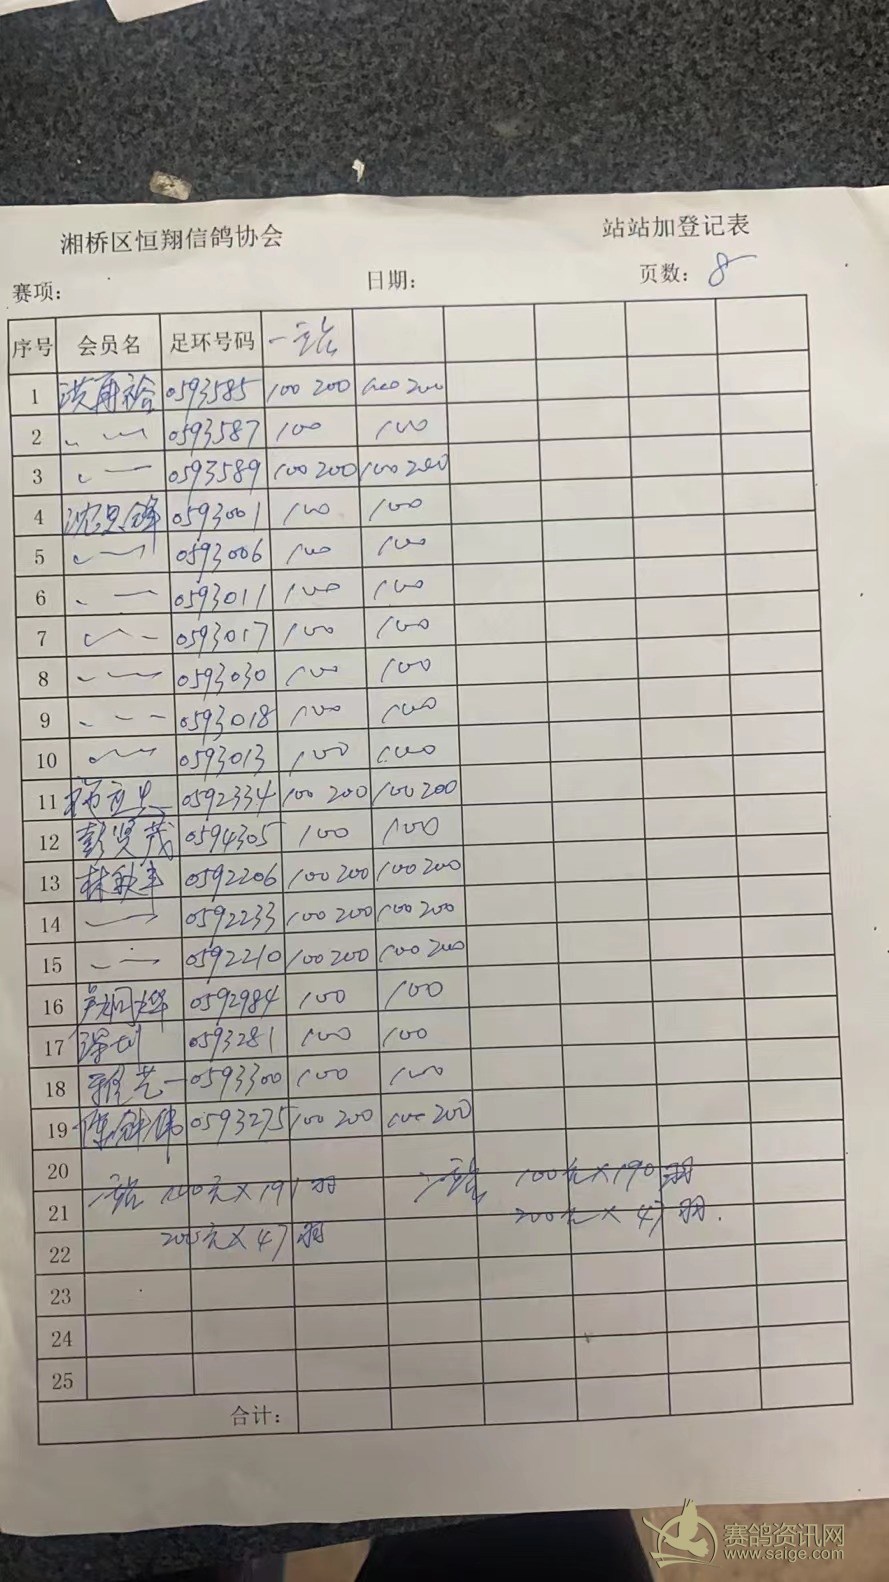 湘桥区恒翔信鸽协会 站站加登记表
赛项： 日期： 页数：8
序号 会员名 足环号码 一站
1 洪再裕 0593585 100 200 100 200
2 0593587 100 100
3 0593589 100 200 100 200
4 0593001 100 100
5 0593006 100 100
6 0593011 100 100
7 0593017 100 100
8 0593030 100 100
9 0593018 100 100
10 0593013 100 100
11 0592334 100 200 100 200
12 彭贤茂 0594305 100 100
13 林秋丰 0592206 100 200 100 200
14 0592233 100 200 100 200
15 0592210 100 200 100 200
16 0592984 100 100
17 0593281 100 100
18 0593300 100 100
19 陈钟伟 0593275 100 200 100 200
20
21 100元×191羽 100元×190羽
22 200元×47羽 200元×47羽.
23
24
25
合计：
赛鸽资讯网
www.saige.com